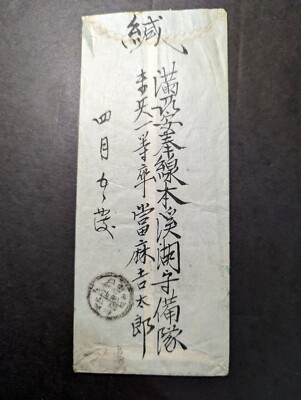 緘
滿洲安奉線本溪湖守備隊
歩兵一等卒當麻吉太郎
四月